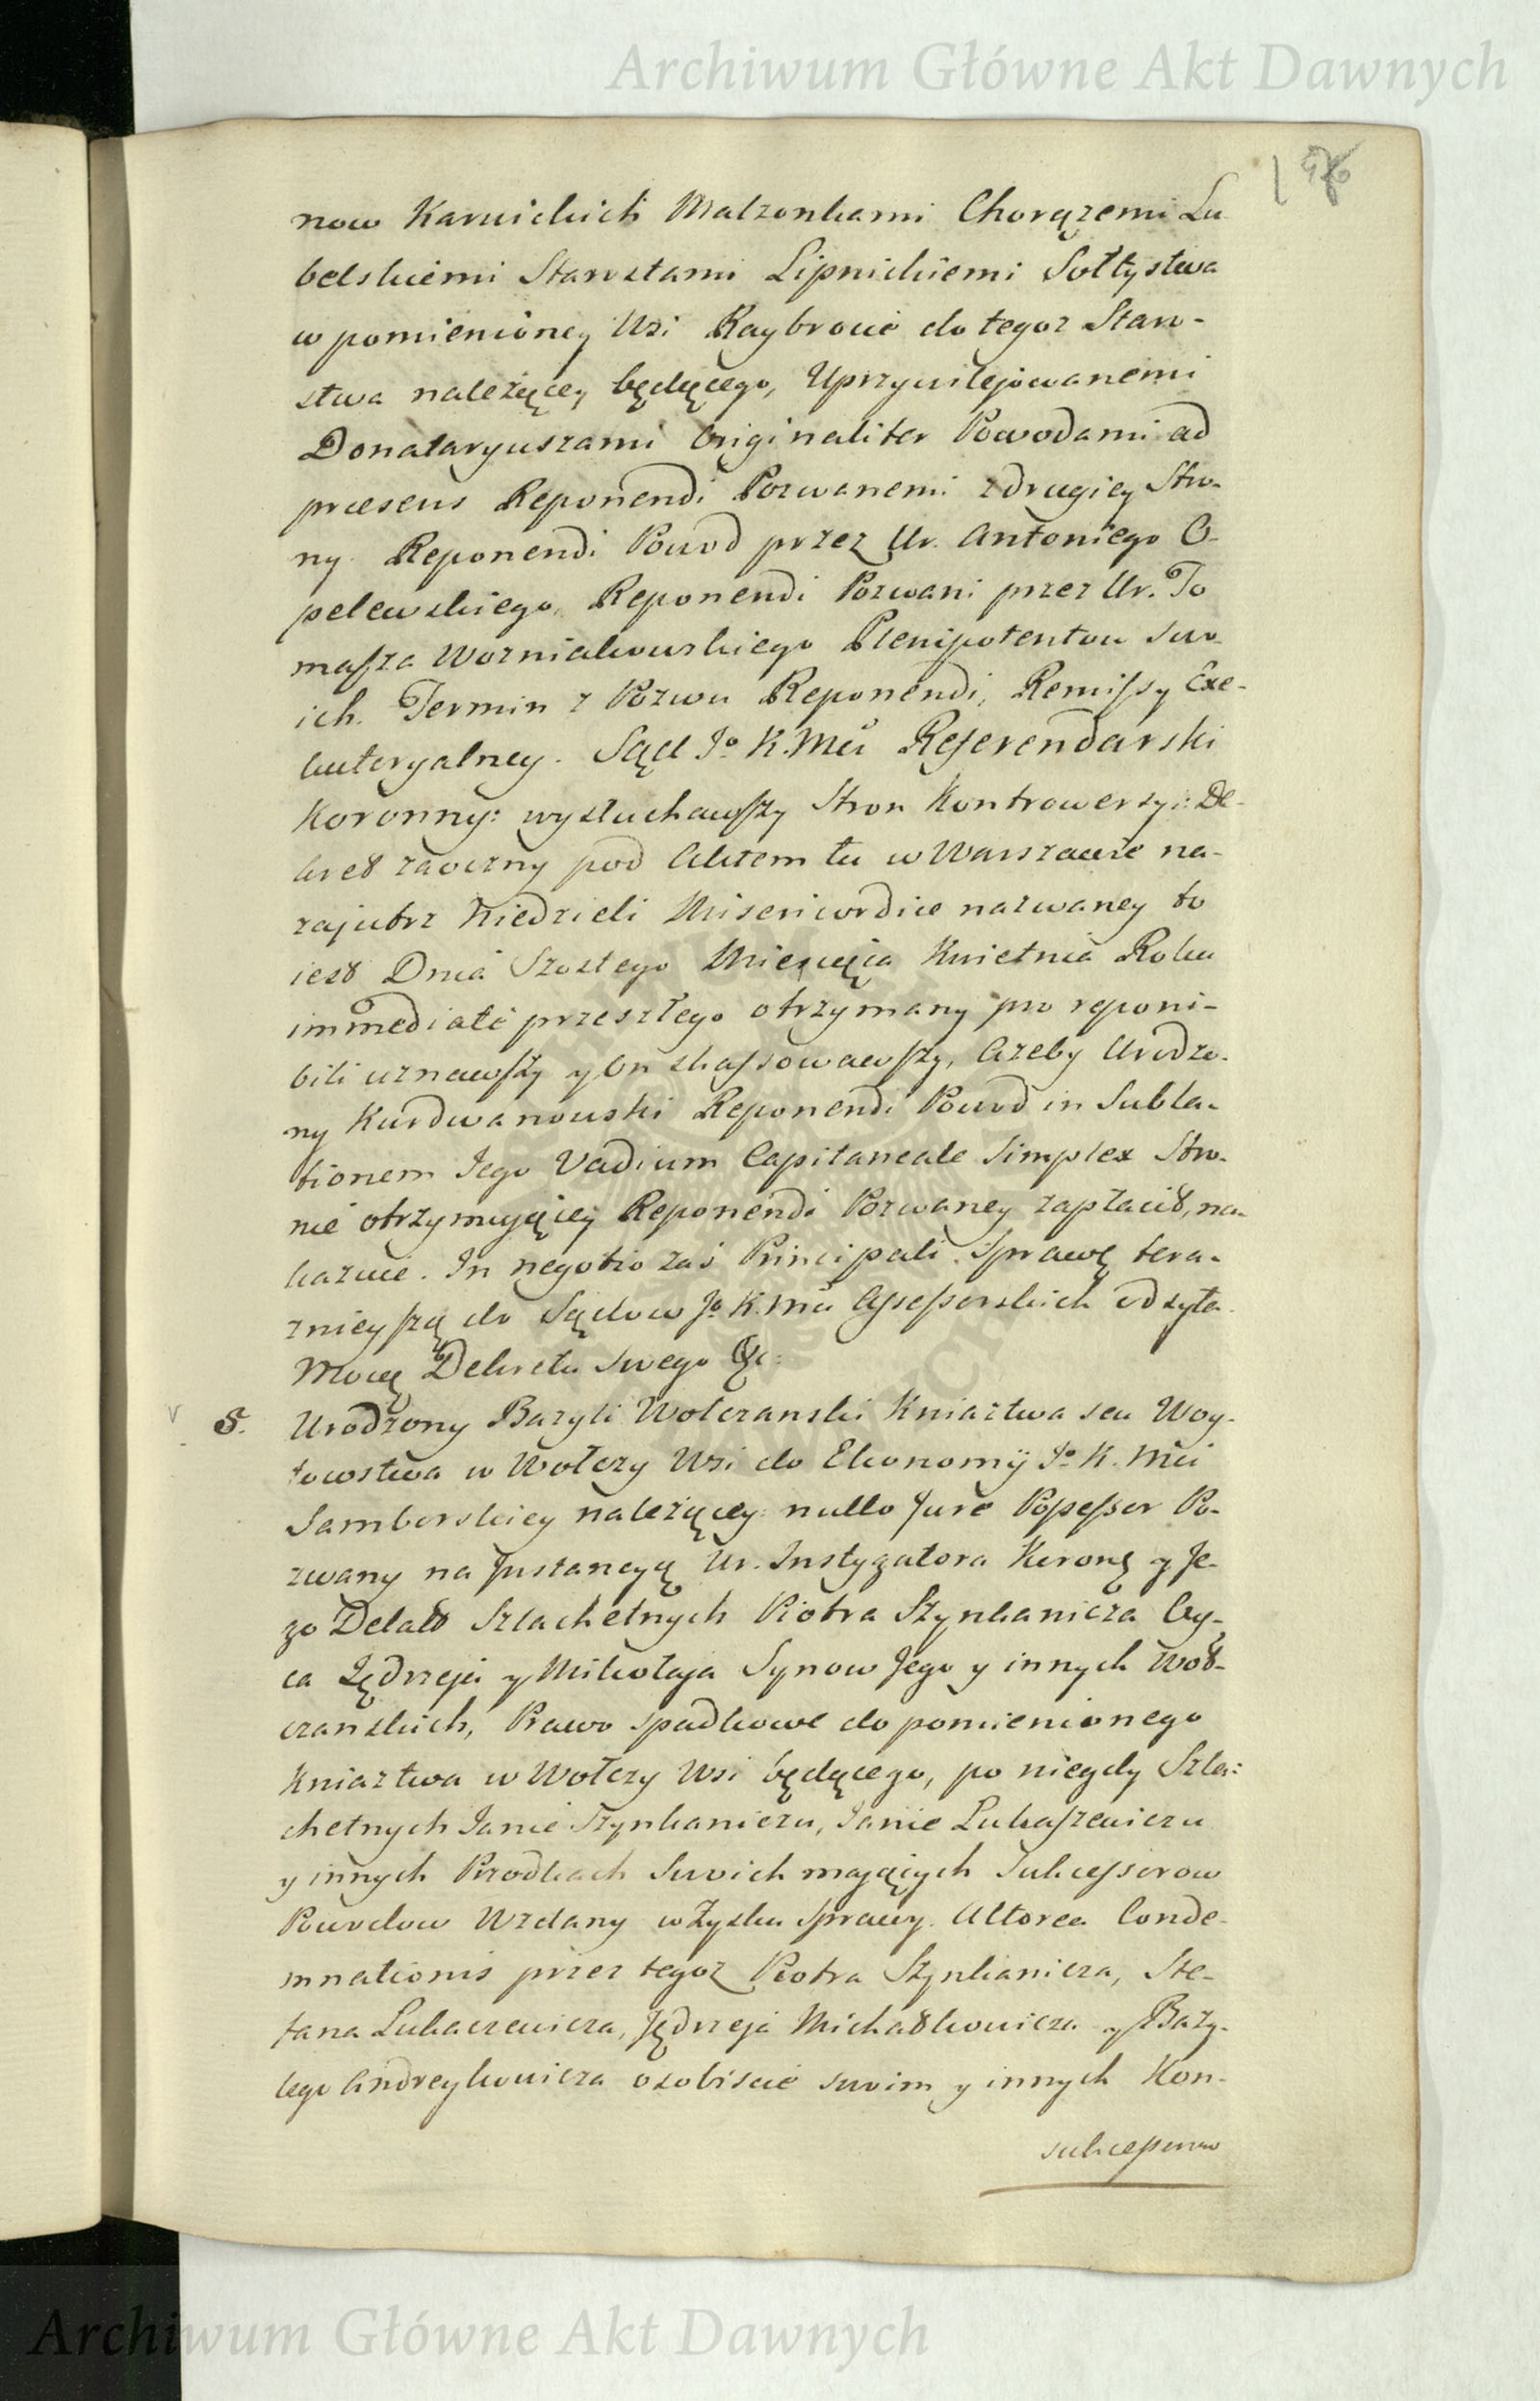 Archiwum Główne Akt Dawnych
now Karwickich Małzonkami Chorązemi Lu
belskiemi Starostami Lipnickiemi Sołtystwa
w pomienioney Wsi Raybrocie do tegoz Staro-
stwa należącey będącego, Uprzywilejowanemi
Donataryuszami originaliter Powodami ad
præsens Reponendi Pozwanemi z drugiey Stro-
ny. Reponendi Powod przez Ur. Antoniego O-
pelewskiego, Reponendi Pozwani przez Ur. To
masza Wozniakowskiego Plenipotentow swo-
ich. Termin z Pozwu Reponendi, Remissy Exe-
kutoryalney. Sąd Jo K. Mci Referendarski
Koronny: wysłuchawszy Stron Kontrowersyi: De-
kret zaoczny pod Aktem tu w Warszawie na-
zajutrz Niedzieli Misericordiæ nazwaney to
iest Dnia Szostego Miesiąca Kwietnia Roku
immediate przeszłego otrzymany pro reponi-
bili uznawszy y On skassowawszy, Azeby Urodzo-
ny Kurdwanowski Reponendi Powod in Subla-
tionem Jego Vadium Capitaneale Simplex Stro-
nie otrzymującey Reponendi Pozwaney zapłacił, na-
kazuie. In negotio zaś Principali Sprawę tera-
znieyszą do Sądow Jo K. Mci Assessorskich odsyła
Mocą Dekretu swego &c:
5. Urodzony Bazyli Wołczanski Kniaztwa seu Woy-
towstwa w Wołczy Wsi do Ekonomÿ Jo K. Mci
Samborskiey należącey: nullo Jure Possessor Po-
zwany na Jnstancyą Ur. Instygatora Koronę y Je-
go Delato Szlachetnych Piotra Szynkanicza Oy-
ca Jędrzeja y Mikołaja Synow Jego y innych Woł-
czanskich, Prawo spadkowe do pomienionego
Kniaztwa w Wołczy Wsi będącego, po niegdy Szla:
chetnych Janie Szynkaniczu, Janie Lukaszewiczu
y innych Przodkach Swoich mających Sukcessorow
Powodow Wzdany w Zysku Sprawy. Actorea Conde-
mnationis przez tegoz Piotra Szynkanicza, Ste-
fana Lukaczewicza, Jędrzeja Michałkowicza y Bazy-
lego Andreykowicza osobiscie swoim y innych Kon-
sukcessorow
Archiwum Główne Akt Dawnych